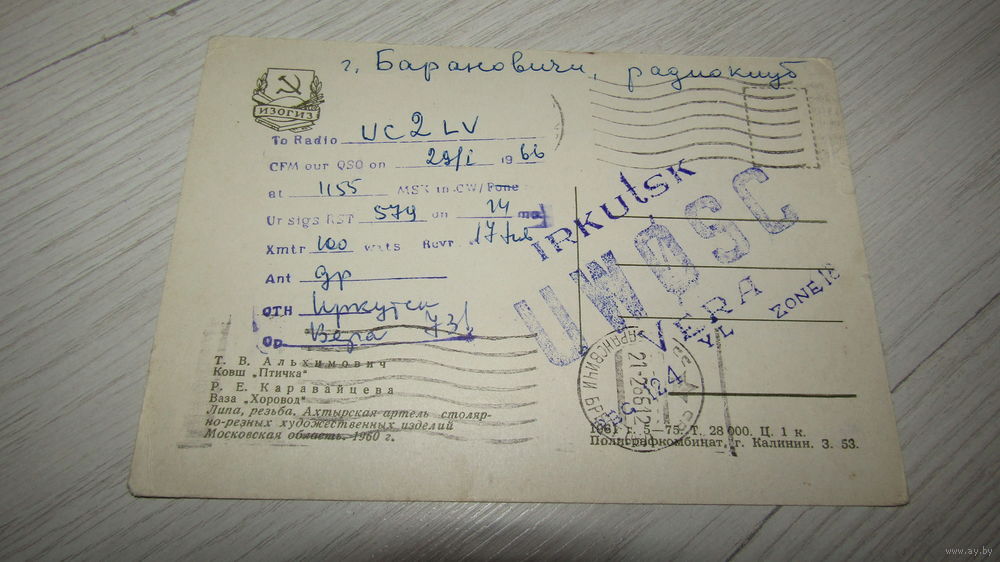 г. Барановичи, радиоклуб
ИЗОГИЗ
To Radio UC2LV
CFM our QSO on 29/I 1966
at 1155 MSK in CW/Fone
Ur sigs RST 579 on 14
Xmtr 100 watts Rcvr 17
Ant gp
QTH Иркутск
Op Вера 73!
IRKUTSK
UWØSC
VERA
YL ZONE 18
Т. В. Альхимович
Ковш „Птичка“
Р. Е. Каравайцева
Ваза „Хоровод“
Липа, резьба. Ахтырская артель столяр-
но-резных художественных изделий
Московская область. 1960 г.
БАРАНОВИЧИ БРЕС
21-2 66 12
1961 г. 5—75. Т. 28 000. Ц. 1 к.
Полиграфкомбинат, г. Калинин. З. 53.
www.ay.by